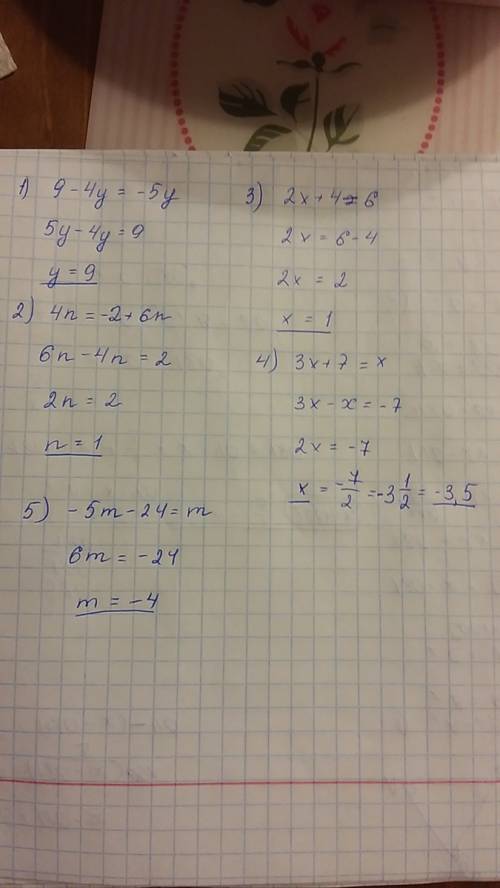 1) 9 - 4y = -5y
5y - 4y = 9
y = 9
2) 4n = -2 + 6n
6n - 4n = 2
2n = 2
n = 1
5) -5m - 24 = m
6m = -24
m = -4
3) 2x + 4 = 6
2x = 6 - 4
2x = 2
x = 1
4) 3x + 7 = x
3x - x = -7
2x = -7
x = -7/2 = -3 1/2 = -3,5